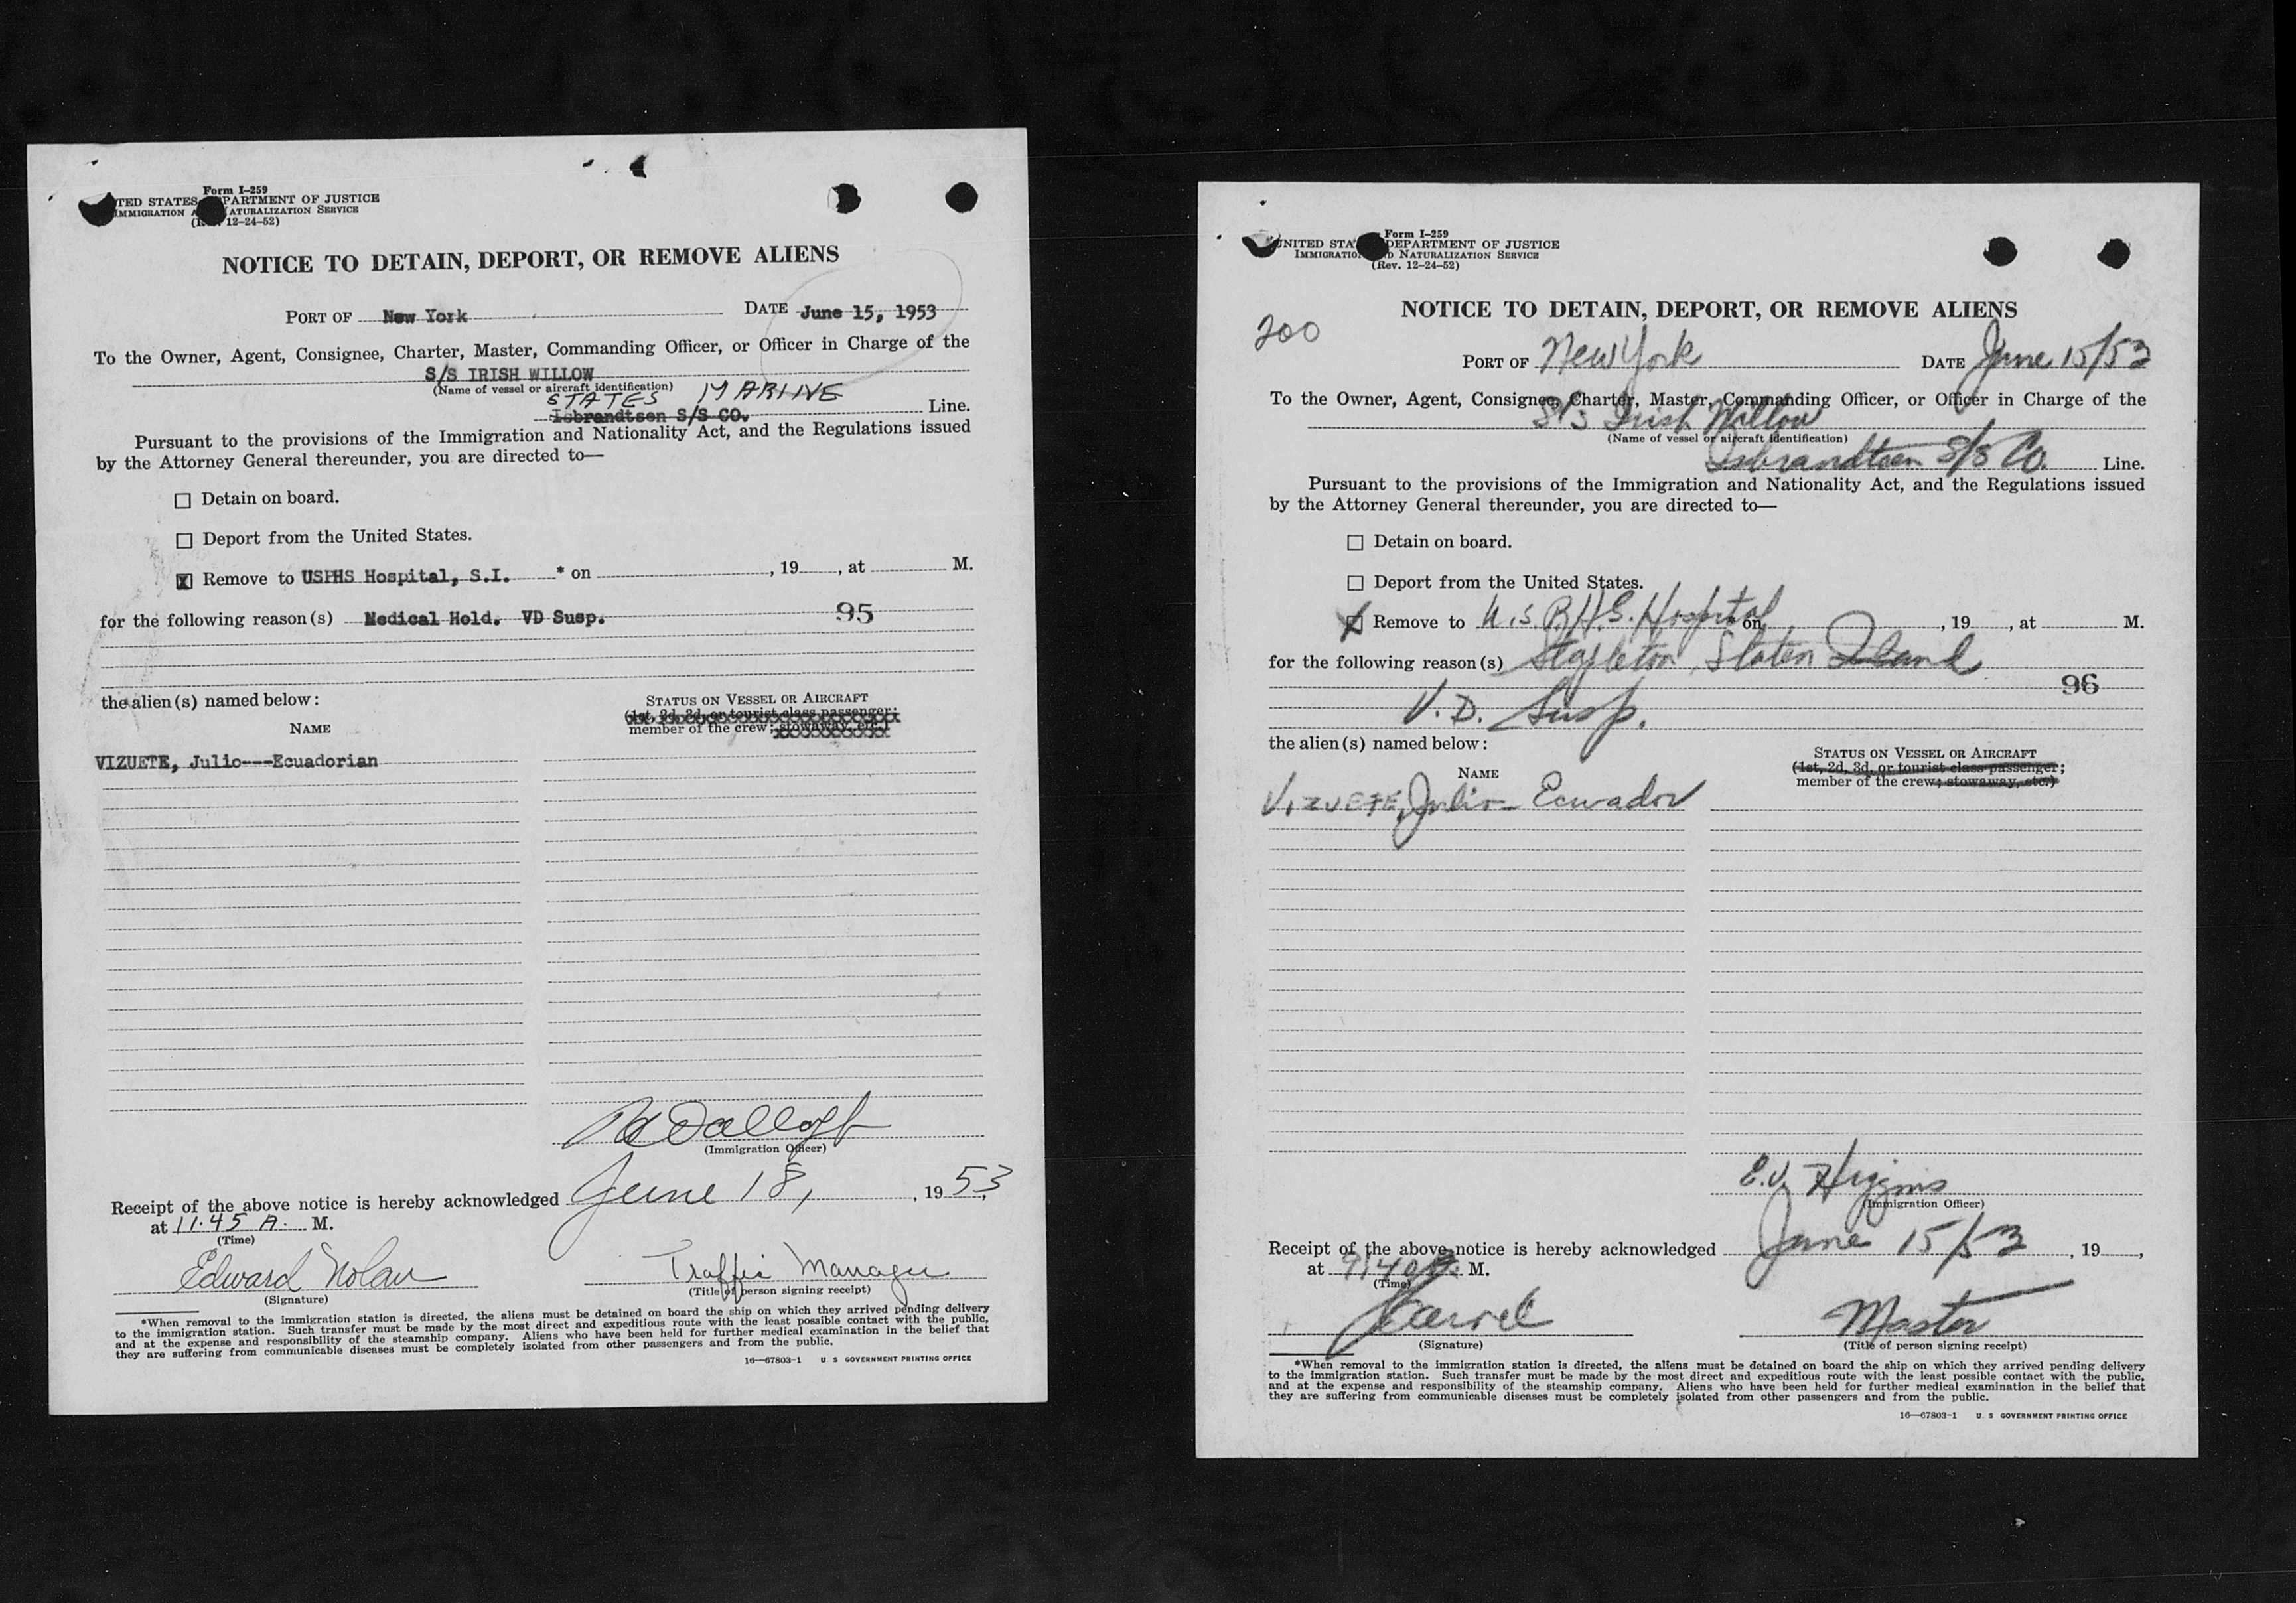 Form I-259
TED STATES PARTMENT OF JUSTICE
IMMIGRATION A ATURALIZATION SERVICE
12-24-52)
NOTICE TO DETAIN, DEPORT, OR REMOVE ALIENS
PORT OF New York DATE June 15, 1953
To the Owner, Agent, Consignee, Charter, Master, Commanding Officer, or Officer in Charge of the
S/S IRISH WILLOW
(Name of vessel or aircraft identification)
STATES MARINE
Isbrandtsen S/S CO. Line.
Pursuant to the provisions of the Immigration and Nationality Act, and the Regulations issued
by the Attorney General thereunder, you are directed to—
☐ Detain on board.
☐ Deport from the United States.
☒ Remove to USPHS Hospital, S.I. * on , 19 , at M.
for the following reason(s) Medical Hold. VD Susp. 95
the alien(s) named below:
STATUS ON VESSEL OR AIRCRAFT
(1st, 2d, 3d, or tourist class passenger;
member of the crew; stowaway, etc.)
NAME
VIZUETE, Julio---Ecuadorian
(Immigration Officer)
Receipt of the above notice is hereby acknowledged June 18, , 19 53,
at 11.45 A. M.
(Time)
Edward Nolan Traffic Manager
(Signature) (Title of person signing receipt)
*When removal to the immigration station is directed, the aliens must be detained on board the ship on which they arrived pending delivery
to the immigration station. Such transfer must be made by the most direct and expeditious route with the least possible contact with the public,
and at the expense and responsibility of the steamship company. Aliens who have been held for further medical examination in the belief that
they are suffering from communicable diseases must be completely isolated from other passengers and from the public.
16—67803-1 U S GOVERNMENT PRINTING OFFICE
Form I-259
UNITED STA DEPARTMENT OF JUSTICE
IMMIGRATIO D NATURALIZATION SERVICE
(Rev. 12-24-52)
NOTICE TO DETAIN, DEPORT, OR REMOVE ALIENS
200
PORT OF New York DATE June 15/53
To the Owner, Agent, Consignee, Charter, Master, Commanding Officer, or Officer in Charge of the
S/S Irish Willow
(Name of vessel or aircraft identification)
Isbrandtsen S/S Co. Line.
Pursuant to the provisions of the Immigration and Nationality Act, and the Regulations issued
by the Attorney General thereunder, you are directed to—
☐ Detain on board.
☐ Deport from the United States.
☒ Remove to U.S.P.H.S. Hospital on , 19 , at M.
for the following reason(s) Stapleton Staten Island
96
V.D. Susp.
the alien(s) named below:
STATUS ON VESSEL OR AIRCRAFT
(1st, 2d, 3d, or tourist class passenger;
member of the crew; stowaway, etc.)
NAME
VIZUETE, Julio - Ecuador
E.V. Higgins
(Immigration Officer)
Receipt of the above notice is hereby acknowledged June 15/53 , 19 ,
at 9:40 M.
(Time)
Master
(Signature) (Title of person signing receipt)
*When removal to the immigration station is directed, the aliens must be detained on board the ship on which they arrived pending delivery
to the immigration station. Such transfer must be made by the most direct and expeditious route with the least possible contact with the public,
and at the expense and responsibility of the steamship company. Aliens who have been held for further medical examination in the belief that
they are suffering from communicable diseases must be completely isolated from other passengers and from the public.
16—67803-1 U. S GOVERNMENT PRINTING OFFICE